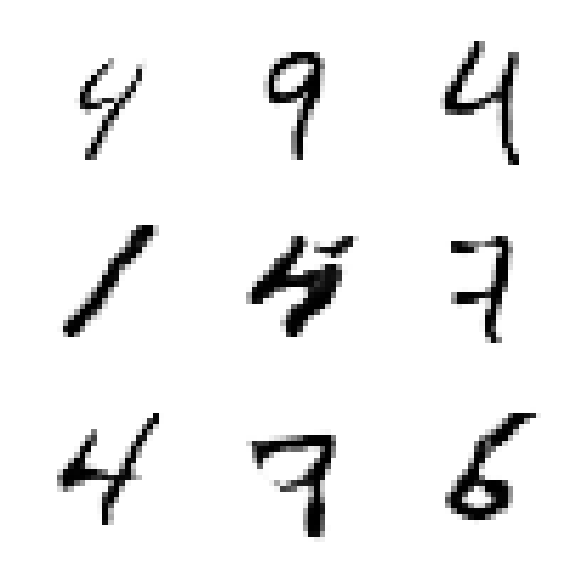 4 9 4
1 5 7
4 7 6